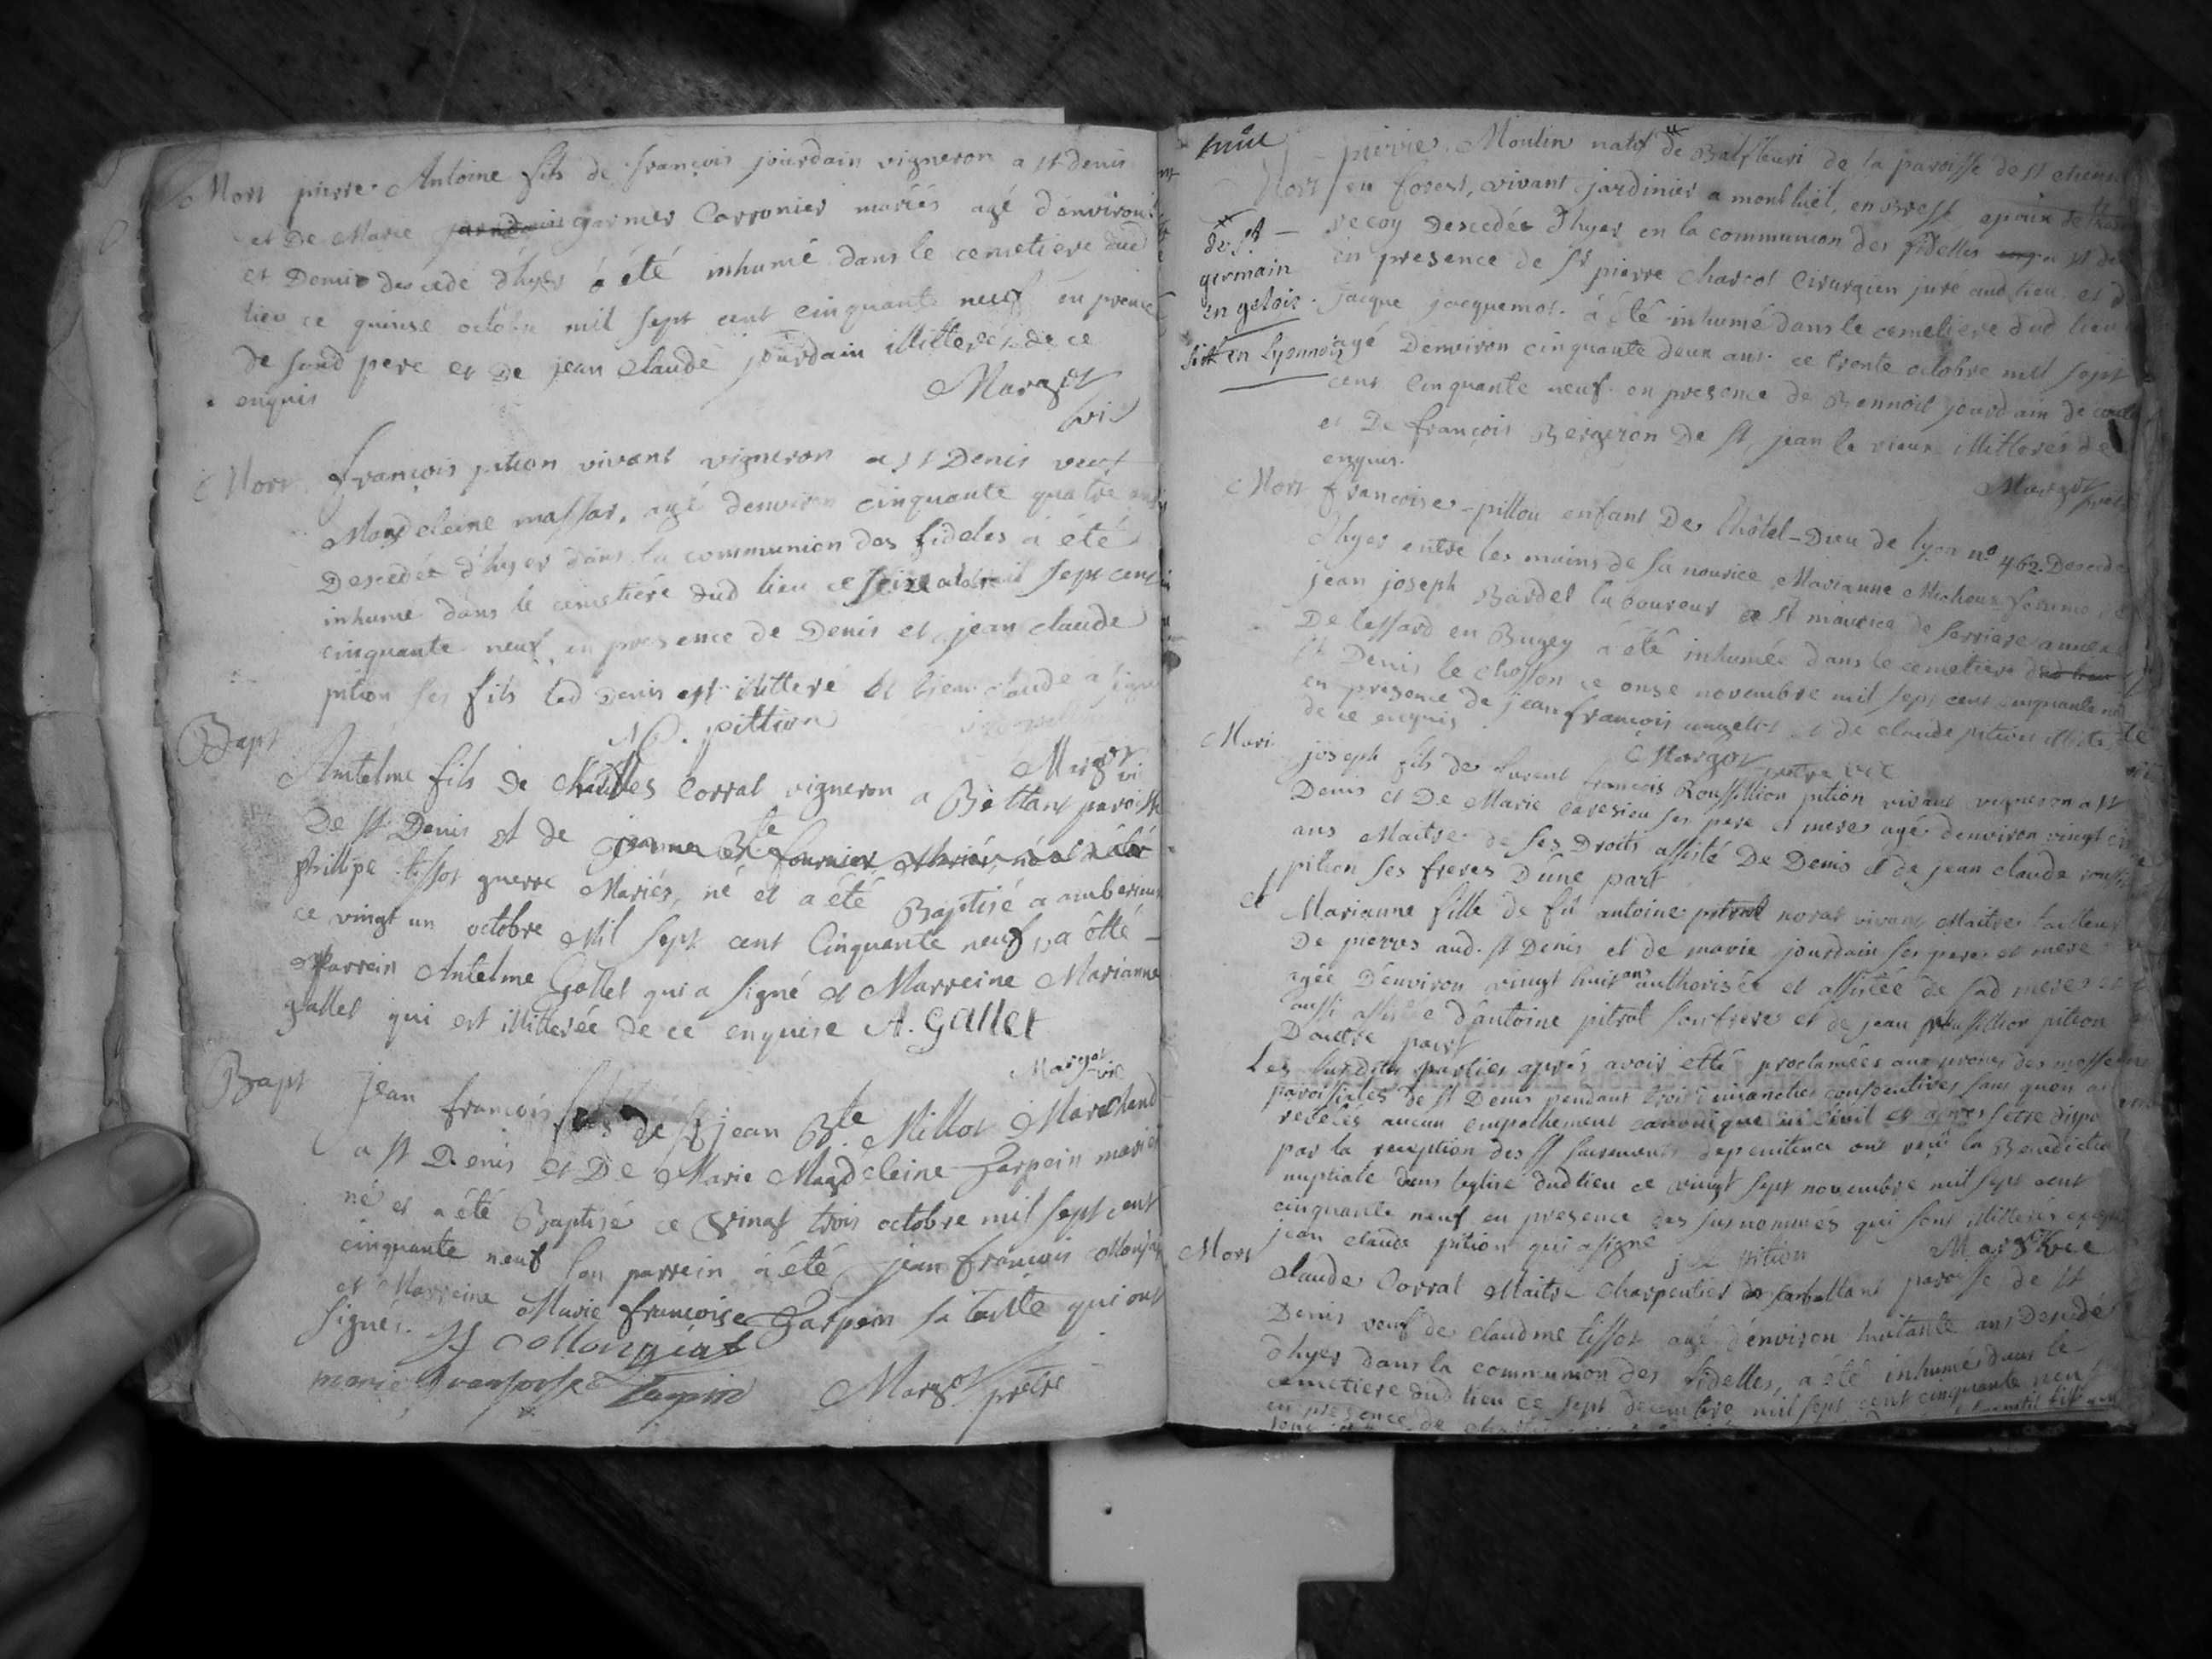 Mort pierre Antoine fils de françois jourdain vigneron a st denis
et De Marie garnier Carronier mariés agé d'environ
et Demie descedé d'hyer a été inhumé dans le cemetiere dud
lieu ce quinse octobre mil sept cent cinquante neuf en presence
de soud pere et de jean claude jourdain illitterés de ce
enquis
Margot
vic
Mort françois pition vivant vigneron a st Denis veuf
Magdeleine massar, agé denviron cinquante quatre ans
Descedée d'hyer dans la communion des fideles a été
inhumé dans le cemetiére dud lieu ce seize octobre mil sept cent
cinquante neuf en presence de Denis et jean claude
pition ses fils led Denis est illitteré et jean claude a signé
pittion
Margot
vi
Bapt
Antelme fils de Charles Corral vigneron a Bettant paroisse
De st Denis et de jeanne Bte fournier Mariés né et a été
phillipe tissot guerre Mariés, né et a été Baptisé a amberieux
ce vingt un octobre Mil sept cent Cinquante neuf, a étté
parrein Antelme Gallet qui a signé et Marreine Marianne
gallet qui est illitterée de ce enquise A. Gallet
Margot
vic
Bapt Jean françois fils de sr jean Bte Millot Marchand
a st Denis et De Marie Magdeleine Garpein mariés
né et a été Baptisé ce vingt trois octobre mil sept cent
cinquante neuf son parrein a été jean françois Monjat
et Marreine Marie françoise Garpein sa tante qui ont
signés.
marie françoise
Margot prêtre
pierre Moulin natif de Balfleuri de la paroisse de st
Mort en forest, vivant jardinier a montluel, en Bresse
de st
germain
en gelois
en Lyonnois
recoy Descedée d'hyer en la communion des fidelles
en presence de sr pierre Charcot Cirurgien juré aud lieu et
jacque jacquemot. a été inhumé dans le cemetiere dud lieu
agé Denviron cinquante deux ans. ce trente octobre mil sept
cent Cinquante neuf en presence de Bennoit jourdain de
et De françois Bergeron De st jean le vieux illitterés de
enquis.
Margot
Mort françoise pillou enfant De L'hôtel-Dieu de lyon no 462. Descedée
d'hyer entre les mains de sa nourice Marianne Michoux femme
jean joseph Bardet laboureur a st maurice de serriere annexe
De lessard en Bugey a été inhumée dans le cemetiere
st Denis le chosson ce onse novembre mil sept cent cinquante
en presence de jean françois et de claude pition
de ce enquis
Margot
prêtre vic
Mari joseph fils de Laurent françois Roussillion pition vivant vigneron a st
Denis et De Marie ses pere et mere agé denviron vingt
ans Maitre de ses Droits assisté De Denis et de jean claude
pition ses freres D'une part
et Marianne fille de fû antoine norat vivant Maitre tailleur
De pierres aud. st Denis et de marie jourdain ses pere et mere
agée D'environ vingt huit ans authorisée et assistée de sad mere et
aussi assistée d'antoine pitrat son frere et de jean roussillion pition
D'autre part
Les susdites parties aprés avoir etté proclamées aux prones des messes
paroissiales de st Denis pendant trois dimanches consecutives sans quon ai
revelés aucun empechement canonique ni civil et apres setre dispo
par la reception des sts sacrements de penitence ont reçu la Benedictio
nuptiale dans l'eglise dud lieu ce vingt sept novembre mil sept cent
cinquante neuf en presence des susnommés qui sont illitterés excepté
jean claude pition qui a signé
pition
Margot vic
Mort claude Corral Maitre charpentier paroisse de st
Denis veuf de claudine tissot agé d'environ huitante ans Descedé
d'hyer dans la communion des fidelles, a été inhumé dans le
cemetiere dud lieu ce sept decembre mil sept cent cinquante neuf
en presence de